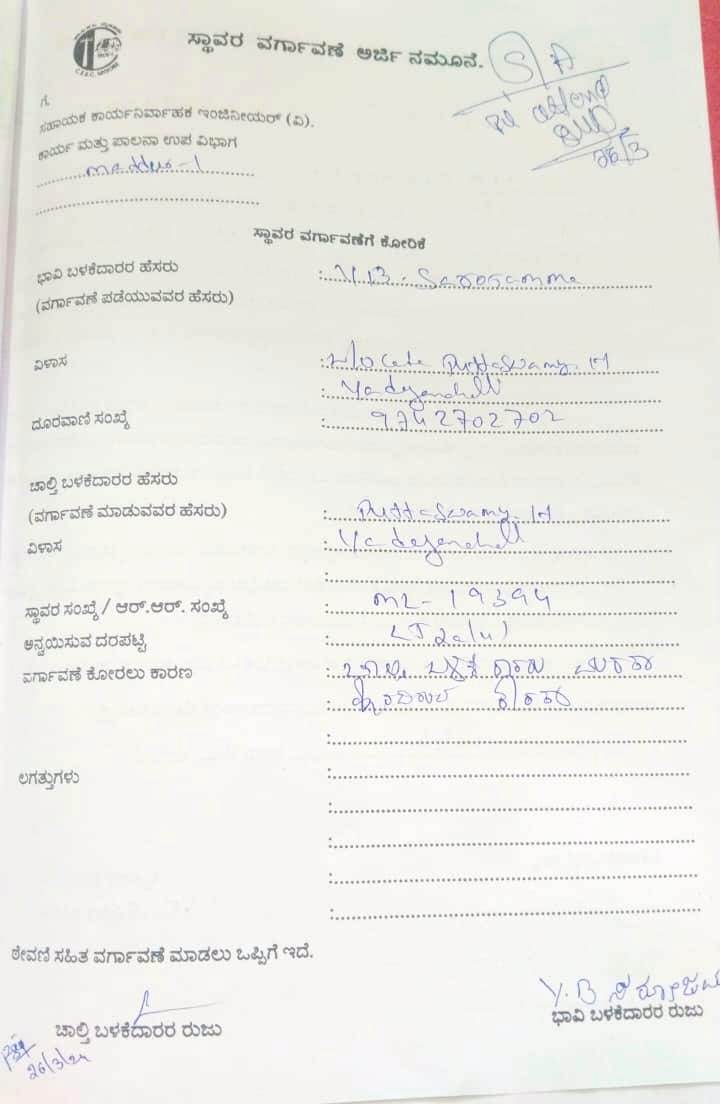 C.E.S.C. MYSORE
ಸ್ಥಾವರ ವರ್ಗಾವಣೆ ಅರ್ಜಿ ನಮೂನೆ.
S A
pl attend
26/3
ಗೆ,
ಸಹಾಯಕ ಕಾರ್ಯನಿರ್ವಾಹಕ ಇಂಜಿನೀಯರ್ (ವಿ).
ಕಾರ್ಯ ಮತ್ತು ಪಾಲನಾ ಉಪ ವಿಭಾಗ
maddur-1
ಸ್ಥಾವರ ವರ್ಗಾವಣೆಗೆ ಕೋರಿಕೆ
ಭಾವಿ ಬಳಕೆದಾರರ ಹೆಸರು : Y.B. Sarojamma
(ವರ್ಗಾವಣೆ ಪಡೆಯುವವರ ಹೆಸರು)
ವಿಳಾಸ : w/o Late Puttaswamy. H
: Yadeganahalli
ದೂರವಾಣಿ ಸಂಖ್ಯೆ : 9742702702
ಚಾಲ್ತಿ ಬಳಕೆದಾರರ ಹೆಸರು
(ವರ್ಗಾವಣೆ ಮಾಡುವವರ ಹೆಸರು) : Puttaswamy. H
ವಿಳಾಸ : Yadeganahalli
:
ಸ್ಥಾವರ ಸಂಖ್ಯೆ / ಆರ್.ಆರ್. ಸಂಖ್ಯೆ : ML-19394
ಅನ್ವಯಿಸುವ ದರಪಟ್ಟಿ : LT2a(u)
ವರ್ಗಾವಣೆ ಕೋರಲು ಕಾರಣ : ಚಾಲ್ತಿ ಬಳಕೆದಾರರು ಮರಣ
: ಹೊಂದಿರುವ ಕಾರಣ
:
ಲಗತ್ತುಗಳು :
:
:
:
:
ಠೇವಣಿ ಸಹಿತ ವರ್ಗಾವಣೆ ಮಾಡಲು ಒಪ್ಪಿಗೆ ಇದೆ.
Y.B ಸರೋಜಮ
ಚಾಲ್ತಿ ಬಳಕೆದಾರರ ರುಜು ಭಾವಿ ಬಳಕೆದಾರರ ರುಜು
26/3/24